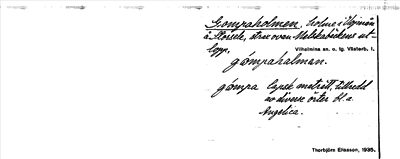 Gompaholmen, holme i Ojeån
å Storsele, strax ovan Mölkabäckens ut-
lopp.
Vilhelmina sn. o. lg. Västerb. l.
gåmpahalman.
gåmpa lapsk maträtt, tillredd
av diverse örter bl. a.
Angelica.
Thorbjörn Eliasson, 1935.